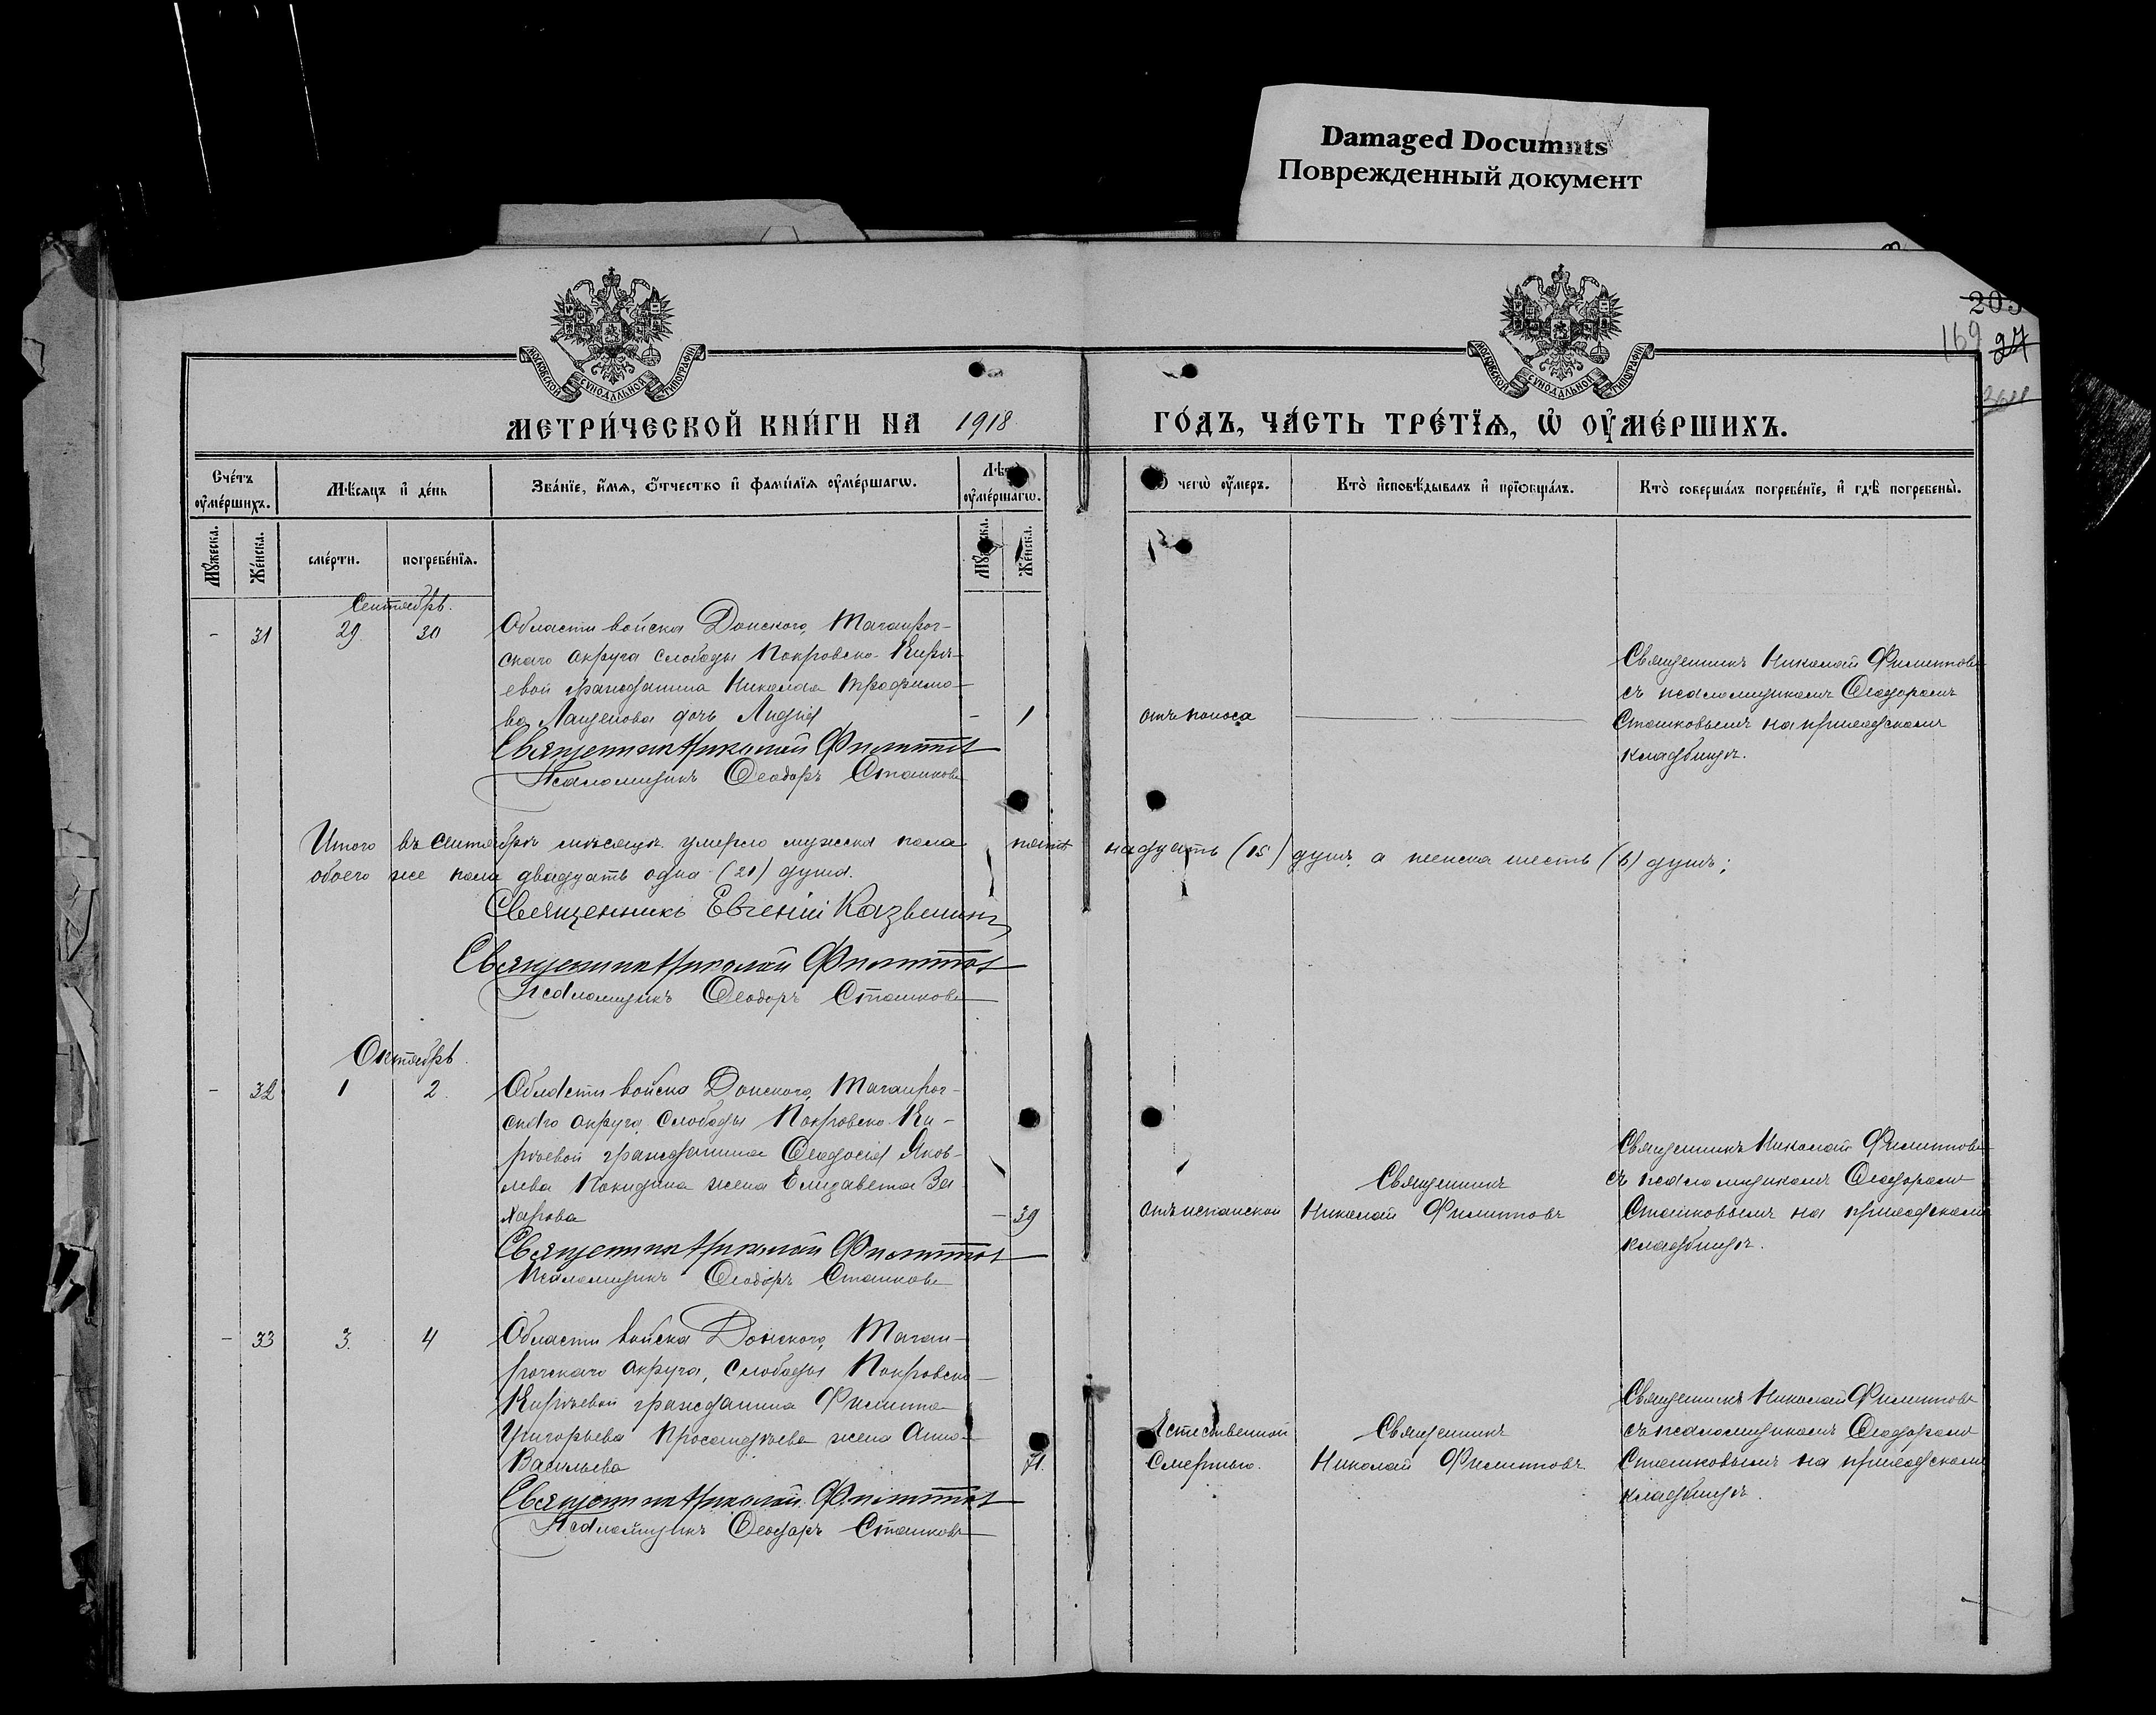 Damaged Documnts
Поврежденный документ
203
169 27
МОСКОВСКОЙ СУНОДАЛЬНОЙ ТИПОГРАФІИ
МОСКОВСКОЙ СУНОДАЛЬНОЙ ТИПОГРАФІИ
МЕТРИ́ЧЕСКОЙ КНИ́ГИ НА 1918 ГО́ДЪ, ЧА́СТЬ ТРЕ́ТЇѦ, Ѡ҆ ОУ҆МЕ́РШИХЪ.
Сче́тъ оу҆ме́ршихъ.
Мѣ́сѧцъ и҆ де́нь
Зва́нїе, и҆́мѧ, ѻ҆́тчество и҆ фами́лїѧ оу҆ме́ршагѡ.
Лѣ́та оу҆ме́ршагѡ.
Ѿ чегѡ̀ оу҆́меръ.
Кто̀ и҆сповѣ́дывалъ и҆ прїѡбща́лъ.
Кто̀ соверша́лъ погребе́нїе, и҆ гдѣ̀ погребены̀.
Мꙋ́жеска.
Же́нска.
сме́рти.
погребе́нїѧ.
Мꙋ́жеска.
Же́нска.
Сентябрь.
- 31 29. 30
Области войска Донского, Таганрог-
скаго округа слободы Покровско-Кирѣ-
евой гражданина Николая Трофимо-
ва Лащенова дочь Лидія - 1
Священникъ Николай Филиппов
Псаломщикъ Ѳеодоръ Сташковъ
отъ поноса
Священникъ Николай Филипповъ
съ псаломщикомъ Ѳеодоромъ
Сташковымъ на приходскомъ
кладбищѣ.
Итого въ сентябрѣ мѣсяцѣ умерло мужска пола пятнадцать (15) душъ, а женска шесть (6) душъ;
обоего же пола двадцать одна (21) душа.
Священникъ Евгеній Казвинин
Священникъ Николай Филиппов
Псаломщикъ Ѳеодоръ Сташковъ
Октябрь.
- 32 1 2.
Области войска Донского, Таганрог-
скаго округа слободы Покровско-Ки-
рѣевой гражданина Ѳеодосія Яков-
лева Покидина жена Елизавета За
харова - 39
Священникъ Николай Филиппов
Псаломщикъ Ѳеодоръ Сташковъ
отъ испанской
Священникъ
Николай Филипповъ
Священникъ Николай Филипповъ
съ псаломщикомъ Ѳеодоромъ
Сташковымъ на приходскомъ
кладбищѣ.
- 33 3. 4
Области войска Донского, Таган-
рогскаго округа, слободы Покровско-
Кирѣевой гражданина Филиппа
Григорьева жена Анна
Васильева 71.
Священникъ Николай Филиппов
Псаломщикъ Ѳеодоръ Сташковъ
Естественной
смертью.
Священникъ
Николай Филипповъ
Священникъ Николай Филипповъ
съ псаломщикомъ Ѳеодоромъ
Сташковымъ на приходскомъ
кладбищѣ.